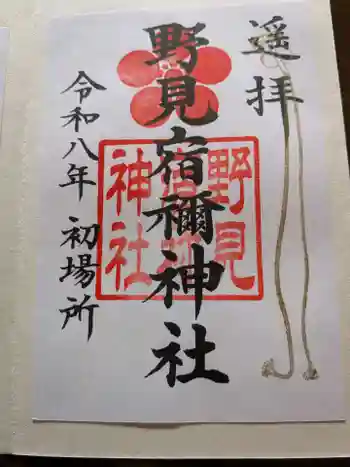 遥拝
野見宿禰神社
令和八年 初場所
野見
宿祢
神社